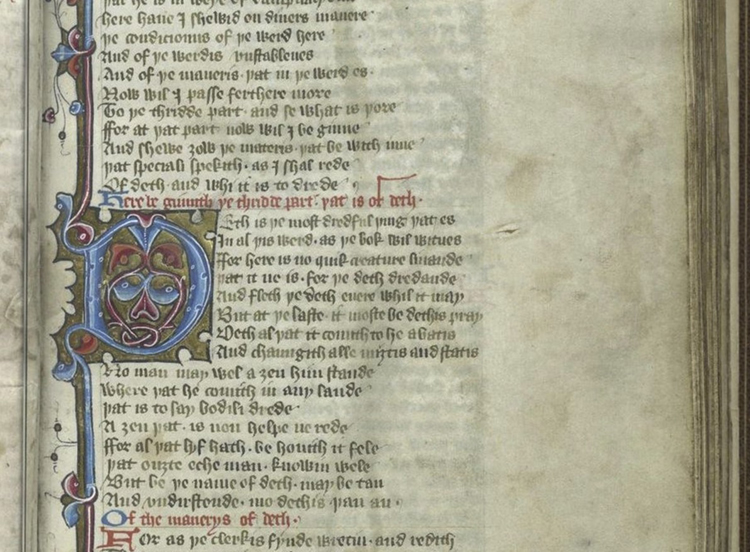 here haue I shewid on diuers manere
þe condicionus of þe werd here
And of þe werdis vnstablenes
And of þe maneris · þat in þe werd es ·
Now wil I passe ferthere more
To þe thridde part · and se what is þore
ffor at þat part now wil I be ginne
And shewe zow þe materis · þat be with inne
þat speciali spekith · as I shal rede
Of deth · and whi it is to drede
Here be ginnith þe thridde part · þat is of deth ·
Deth is þe most dredful þing þat es
In al þis werd · as þe bok wil witnes
For here is no quik creature liuande
þat it ne is · for þe deth dredande
And fleth þe deth euere whil it may
But at þe laste · it moste be dethis pray
Deth al þat it comith to he abatis
And chaungith alle mytis and statis
No man may wel a zen him stande
where þat he comith in any lande
þat is to say bodili drede ·
A zen þat · is non helpe ne rede
ffor al þat lyf hath · be houith it fele
þat ouzte eche man · knowin wele
But be þe name of deth · may be tan
And vndirstonde · mo dethis þan an ·
Of the manerys of deth ·
For as þe clerkis fynde wretin · and redith